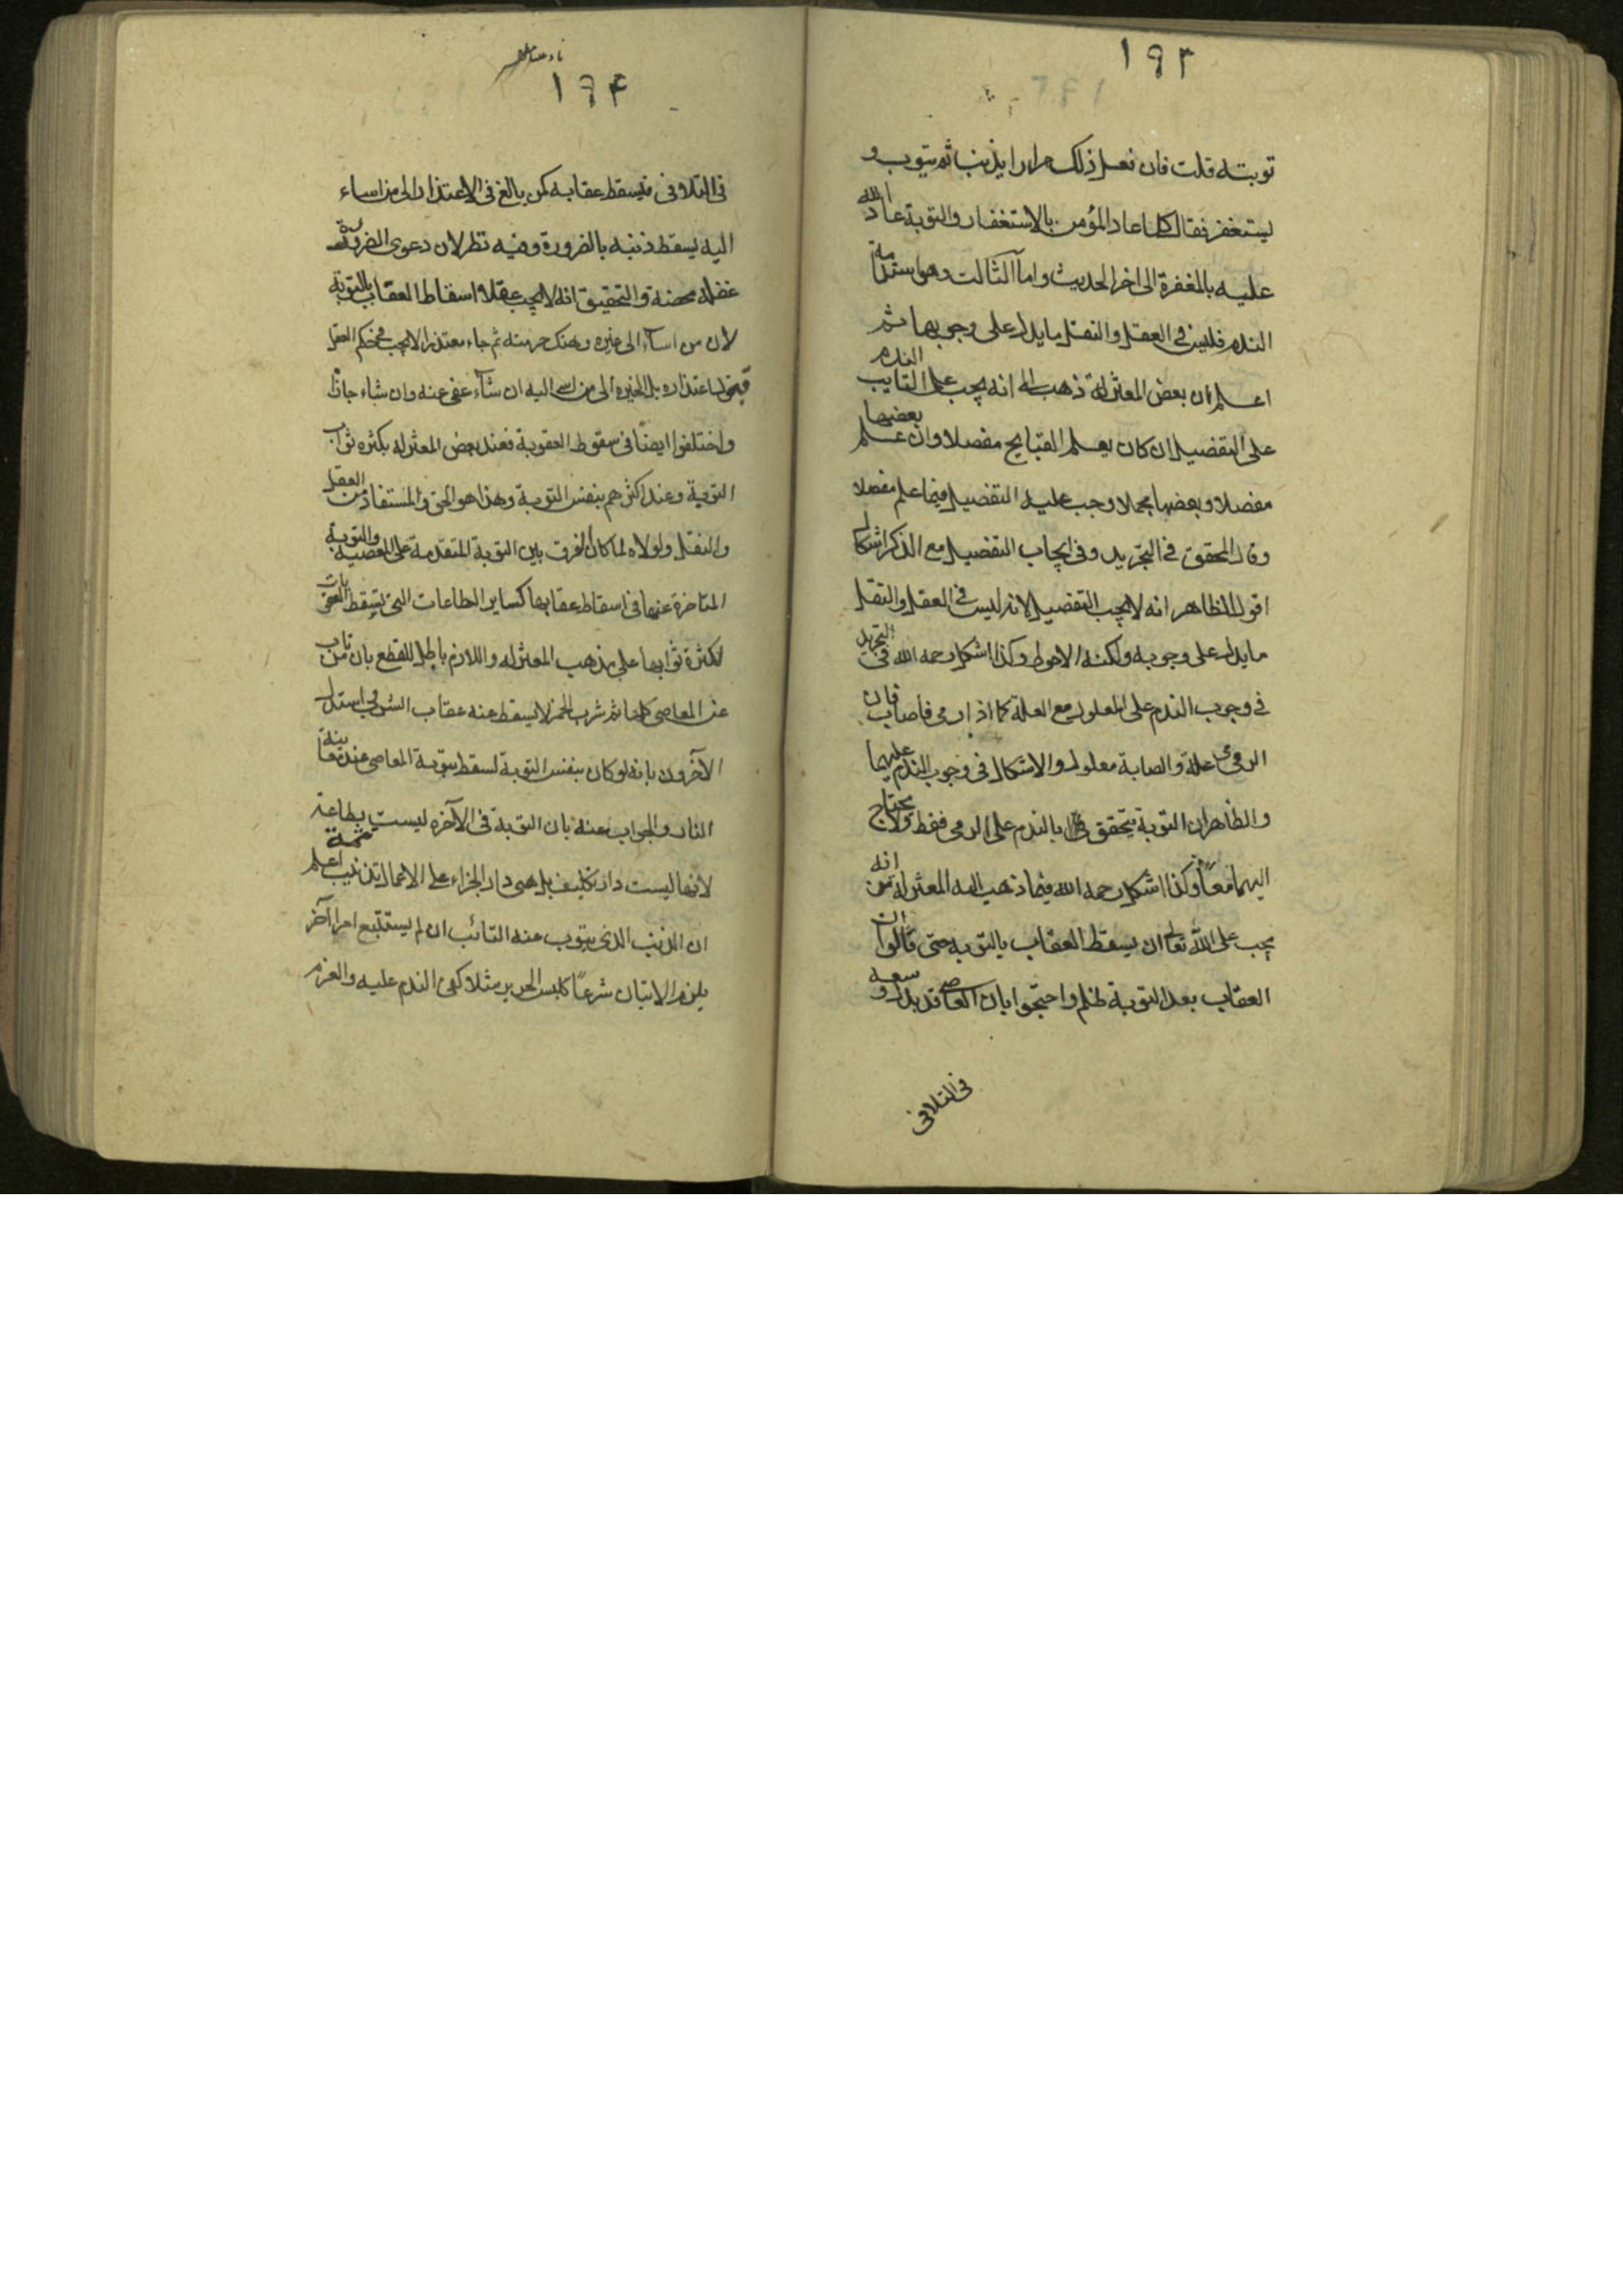 ١٩٣
توبته قلت فان فعل ذلك مرارا يذنب ثم يتوب و
يستغفر فقال كلما عاد المؤمن بالاستغفار والتوبة عاد الله
عليه بالمغفرة الى اخر الحديث واما الثالث وهو استدامة
الندم فليس فى العقل والنقل ما يدل على وجوبها ثم
اعلم ان بعض المعتزلة ذهب الى انه يجب على التايب الندم
على التفصيل ان كان يعلم القبايح مفصلا وان علم بعضها
مفصلا وبعضها مجملا وجب عليه التفصيل فيما علم مفصلا
وقال المحقق فى التجريد وفى ايجاب التفصيل مع الذكر اشكال
اقول الظاهر انه لا يجب التفصيل لانه ليس فى العقل والنقل
ما يدل على وجوبه ولكنه الاحوط وكذا اشكل رحمه الله فى التجريد
فى وجوب الندم على المعلول مع العلة كما اذا رمى فاصاب فان
الرمى علة والصابة معلول والاشكال فى وجوب الندم عليهما
والظاهر ان التوبة يتحقق بالندم على الرمى فقط ولا يحتاج
اليهما معاً وكذا اشكل رحمه الله فيما ذهب اليه المعتزلة من انه
يجب على الله تعالى ان يسقط العقاب بالتوبه حتى قالوا ان
العقاب بعد التوبة ظلم واحتجوا بان العاصى قد بذل وسعه
فى التلافى
١٩۴
فى التلافى فيسقط عقابه كمن بالغ فى الاعتذار الى من اساء
اليه يسقط ذنبه بالضرورة وفيه نظر لان دعوى الضرورة
غفلة محضة والتحقيق انه لا يجب عقلا اسقاط العقاب بالتوبة
لان من اساء الى غيره وهتك حرمته ثم جاء معتذرا لا يجب فى حكم العقل
قبول اعتذاره بل الخيره الى من اسى اليه ان شاء عفى عنه وان شاء جازا
واختلفوا ايضاً فى سقوط العقوبة فعند بعض المعتزله بكثره ثواب
التوبة وعند اكثرهم بنفس التوبة وهذا هو الحق والمستفاد من العقل
والنقل ولولاه لما كان الفرق بين التوبة المتقدمة على المعصية والتوبة
المتاخرة عنها فى اسقاط عقابها كساير الطاعات التى يسقط العقوبات
لكثرة ثوابها على مذهب المعتزله واللازم باطل للقطع بان من تاب
عن المعاصى كلها ثم شرب الخمر لا يسقط عنه عقاب الشرب واستدل
الآخرون بانه لو كان بنفس التوبة لسقط بتوبة المعاصى عند معاينة
النار والجواب عنه بان التوبة فى الآخره ليست بطاعة
لانها ليست دار تكليف بل هى دار الجزاء على الاعمال تذنيب اعلم
ان الذنب الذى يتوب عنه التائب ان لم يستتبع امرا آخر
يلزم الاتيان شرعاً كلبس الحرير مثلا كفى الندم عليه والعزم